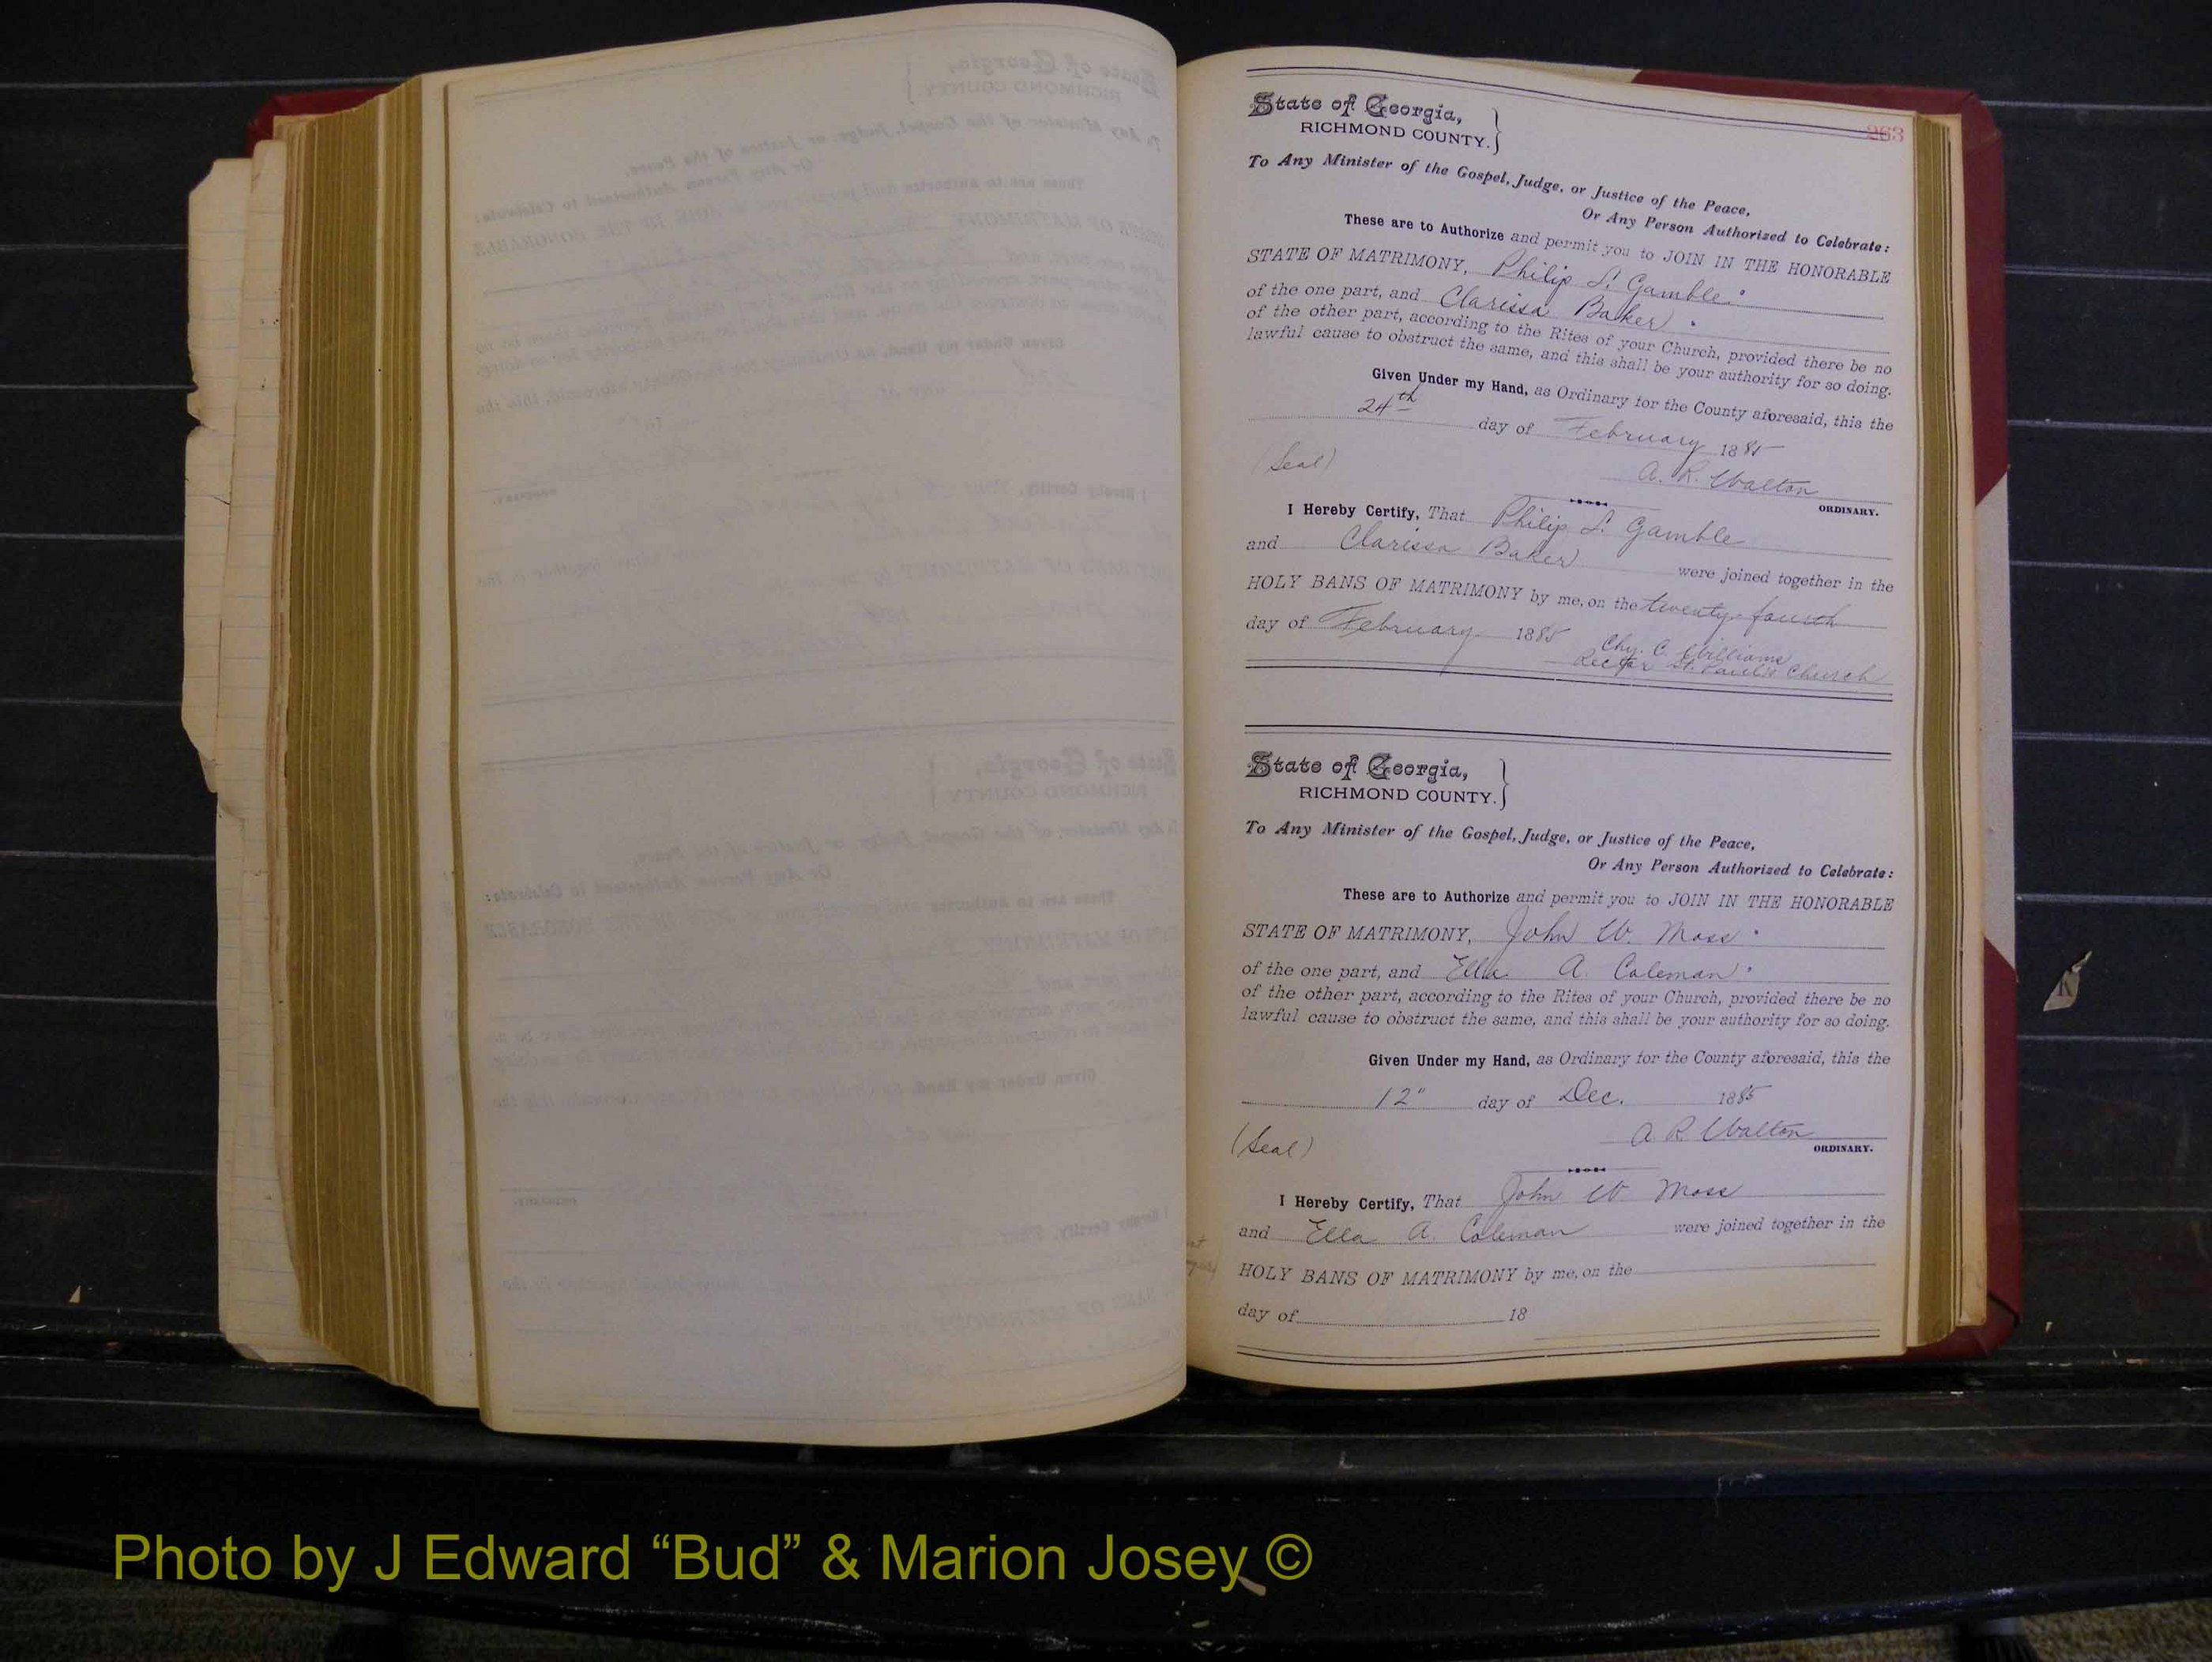 263
State of Georgia,
RICHMOND COUNTY.
To Any Minister of the Gospel, Judge, or Justice of the Peace,
Or Any Person Authorized to Celebrate:
These are to Authorize and permit you to JOIN IN THE HONORABLE
STATE OF MATRIMONY, Philip S. Gamble
of the one part, and Clarissa Baker
of the other part, according to the Rites of your Church, provided there be no
lawful cause to obstruct the same, and this shall be your authority for so doing.
Given Under my Hand, as Ordinary for the County aforesaid, this the
24th day of February 1885
(Seal) A. R. Walton
ORDINARY.
I Hereby Certify, That Philip S. Gamble
and Clarissa Baker were joined together in the
HOLY BANS OF MATRIMONY by me, on the twenty-fourth
day of February 1885
Chs. C. Williams
Rector St. Paul's Church
State of Georgia,
RICHMOND COUNTY.
To Any Minister of the Gospel, Judge, or Justice of the Peace,
Or Any Person Authorized to Celebrate:
These are to Authorize and permit you to JOIN IN THE HONORABLE
STATE OF MATRIMONY, John W. Moss
of the one part, and Ella A. Coleman
of the other part, according to the Rites of your Church, provided there be no
lawful cause to obstruct the same, and this shall be your authority for so doing.
Given Under my Hand, as Ordinary for the County aforesaid, this the
12" day of Dec. 1885
(Seal) A R Walton
ORDINARY.
I Hereby Certify, That John W Moss
and Ella A. Coleman were joined together in the
HOLY BANS OF MATRIMONY by me, on the
day of 18
Photo by J Edward “Bud” & Marion Josey ©